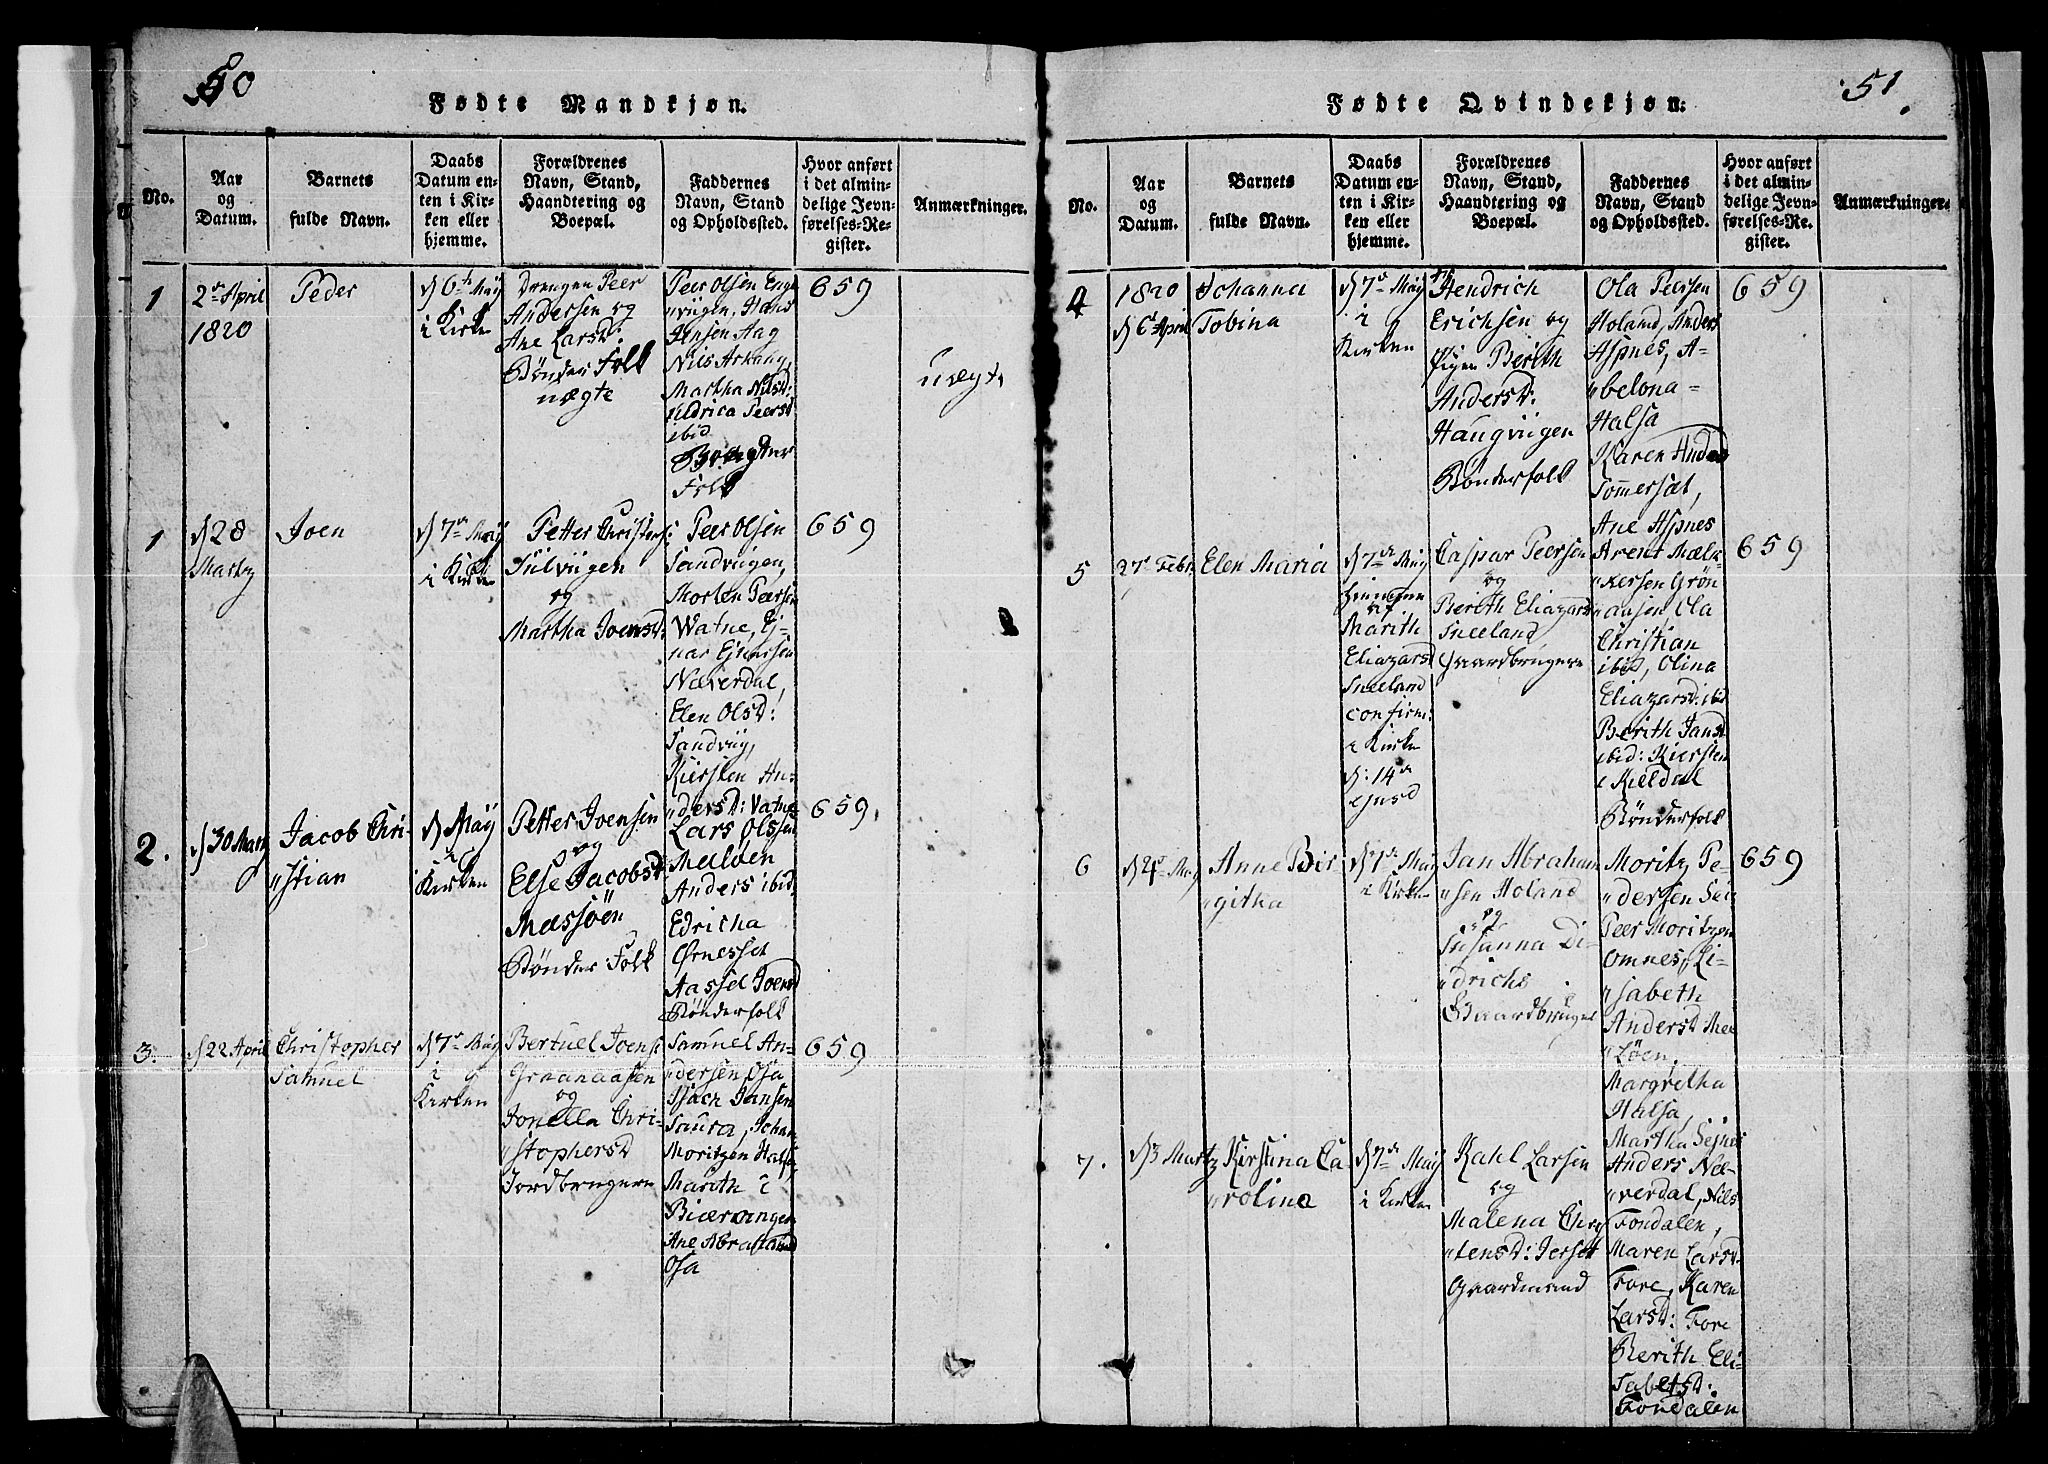 50
Fødte Mandkjøn.
No.
Aar
og
Datum.
Barnets
fulde Navn.
Daabs
Datum en-
ten i Kir-
ken eller
hjemme.
Forældrenes
Navn, Stand,
Haandtering og
Boepæl.
Faddernes
Navn, Stand
og Opholdssted.
Hvor anført
i det almin-
delige Jevn-
førelses-Re-
gister.
Anmærkninger.
1
2den April
1820
Peder
d 6te Maij
i Kirken
Drengen Peer
Andersen og
Ane Larsd:
Bønder Folk
uægte
Peer Olsen Eng-
"viigen, Hans
Jensen Aag
Nils Arhaug,
Martha Nilsd:
ibid
Folk
659
uægte
1
d 28
Martz
Joen
d 7de Maij
i Kirken
Petter Christens:
Sülviigen
og
Martha Joensd:
Peer Olsen
Sandviigen,
Morten Peersen
Watne, Ej-
nar Ejnersen
Næverdal,
Elen Olsd:
Sandviig,
Kiersten An-
"dersd: Vatne
659
2.
d 30 Martz
Jacob Chri-
"stian
d Maij
i
Kirken
Petter Joensen
og
Else Jacobsd
Mæssöen
Bönder Folk
Lars Olssen
Meløen
Anders ibid,
Edricha
Ørnesset
Aassel Joensd
Bönderfolk
659.
3.
d 22 April
Christopher
Samuel
d 7de Maij
i
Kirken
Bertuel Joens:
Graanaasen
og
Jonetta Chri-
"stophersd
Jordbrugere
Samuel An-
"dersen Osa
Isach Jansen
Saura, Johan
Moritzen Halsa,
Marith i
Biærangen
Ane Abrahamsd
Osa
659
51.
Fødte Qvindekjøn:
No.
Aar
og
Datum.
Barnets
fulde Navn.
Daabs
Datum en-
ten i Kir-
ken eller
hjemme.
Forældrenes
Navn, Stand,
Haandtering og
Boepæl.
Faddernes
Navn, Stand
og Opholdssted.
Hvor anført
i det almin-
delige Jevn-
førelses-Re-
gister.
Anmærkninger.
4
1820
d 6te April
Johanna
Tobina
d 7de Maij
i
Kirken
Hendrich
Erichsen og
Pigen Berith
Andersd:
Haugviigen
Bönderfolk
Ola Peersen
Holand, Anders
Aspnes, A-
"belona
Halsa
Karen Andersd
Sommersæt,
Ane Aspnes
659
5
27de Febr:
Elen Maria
d 7de Maij
hiemme
af
Marith
Eliazarsd
Sneeland
confirm:
i Kirken
d: 14de
ejusd
Caspar Peersen
og
Berith Eliazarsd
Sneeland
Gaardbrugere
Arent Mæla-
"kersen Grön-
"aasen, Ola
Christian
ibid, Olina
Eliazarsd: ibid
Berith Jansd
ibid: Kiersten
i Kieldal
Bönderfolk
659
6
d 24de Maj
Anne Bir-
"githa
d 7de Maij
i Kirken
Jan Abraham-
"sen Holand
og
Susanna Di-
"drichs
Gaardbruger
Moritz Pe-
"dersen
Peer Moritzen
Omnes, Li-
"sabeth
Andersd Me-
"löen,
Margretha
Halsa,
Martha
659
7.
d 3 Martz
Kirstina Ca-
"rolina
d 7de Maij
i Kirken
Kahl Larsen
og
Malena Chri-
"tensd: Jerset
Gaardmand
Anders Næ-
"verdal, Nils
Fondalen,
Maren Larsd
Fore, Karen
Larsd: Fore
Berith Eli-
sabetsd:
Fondalen